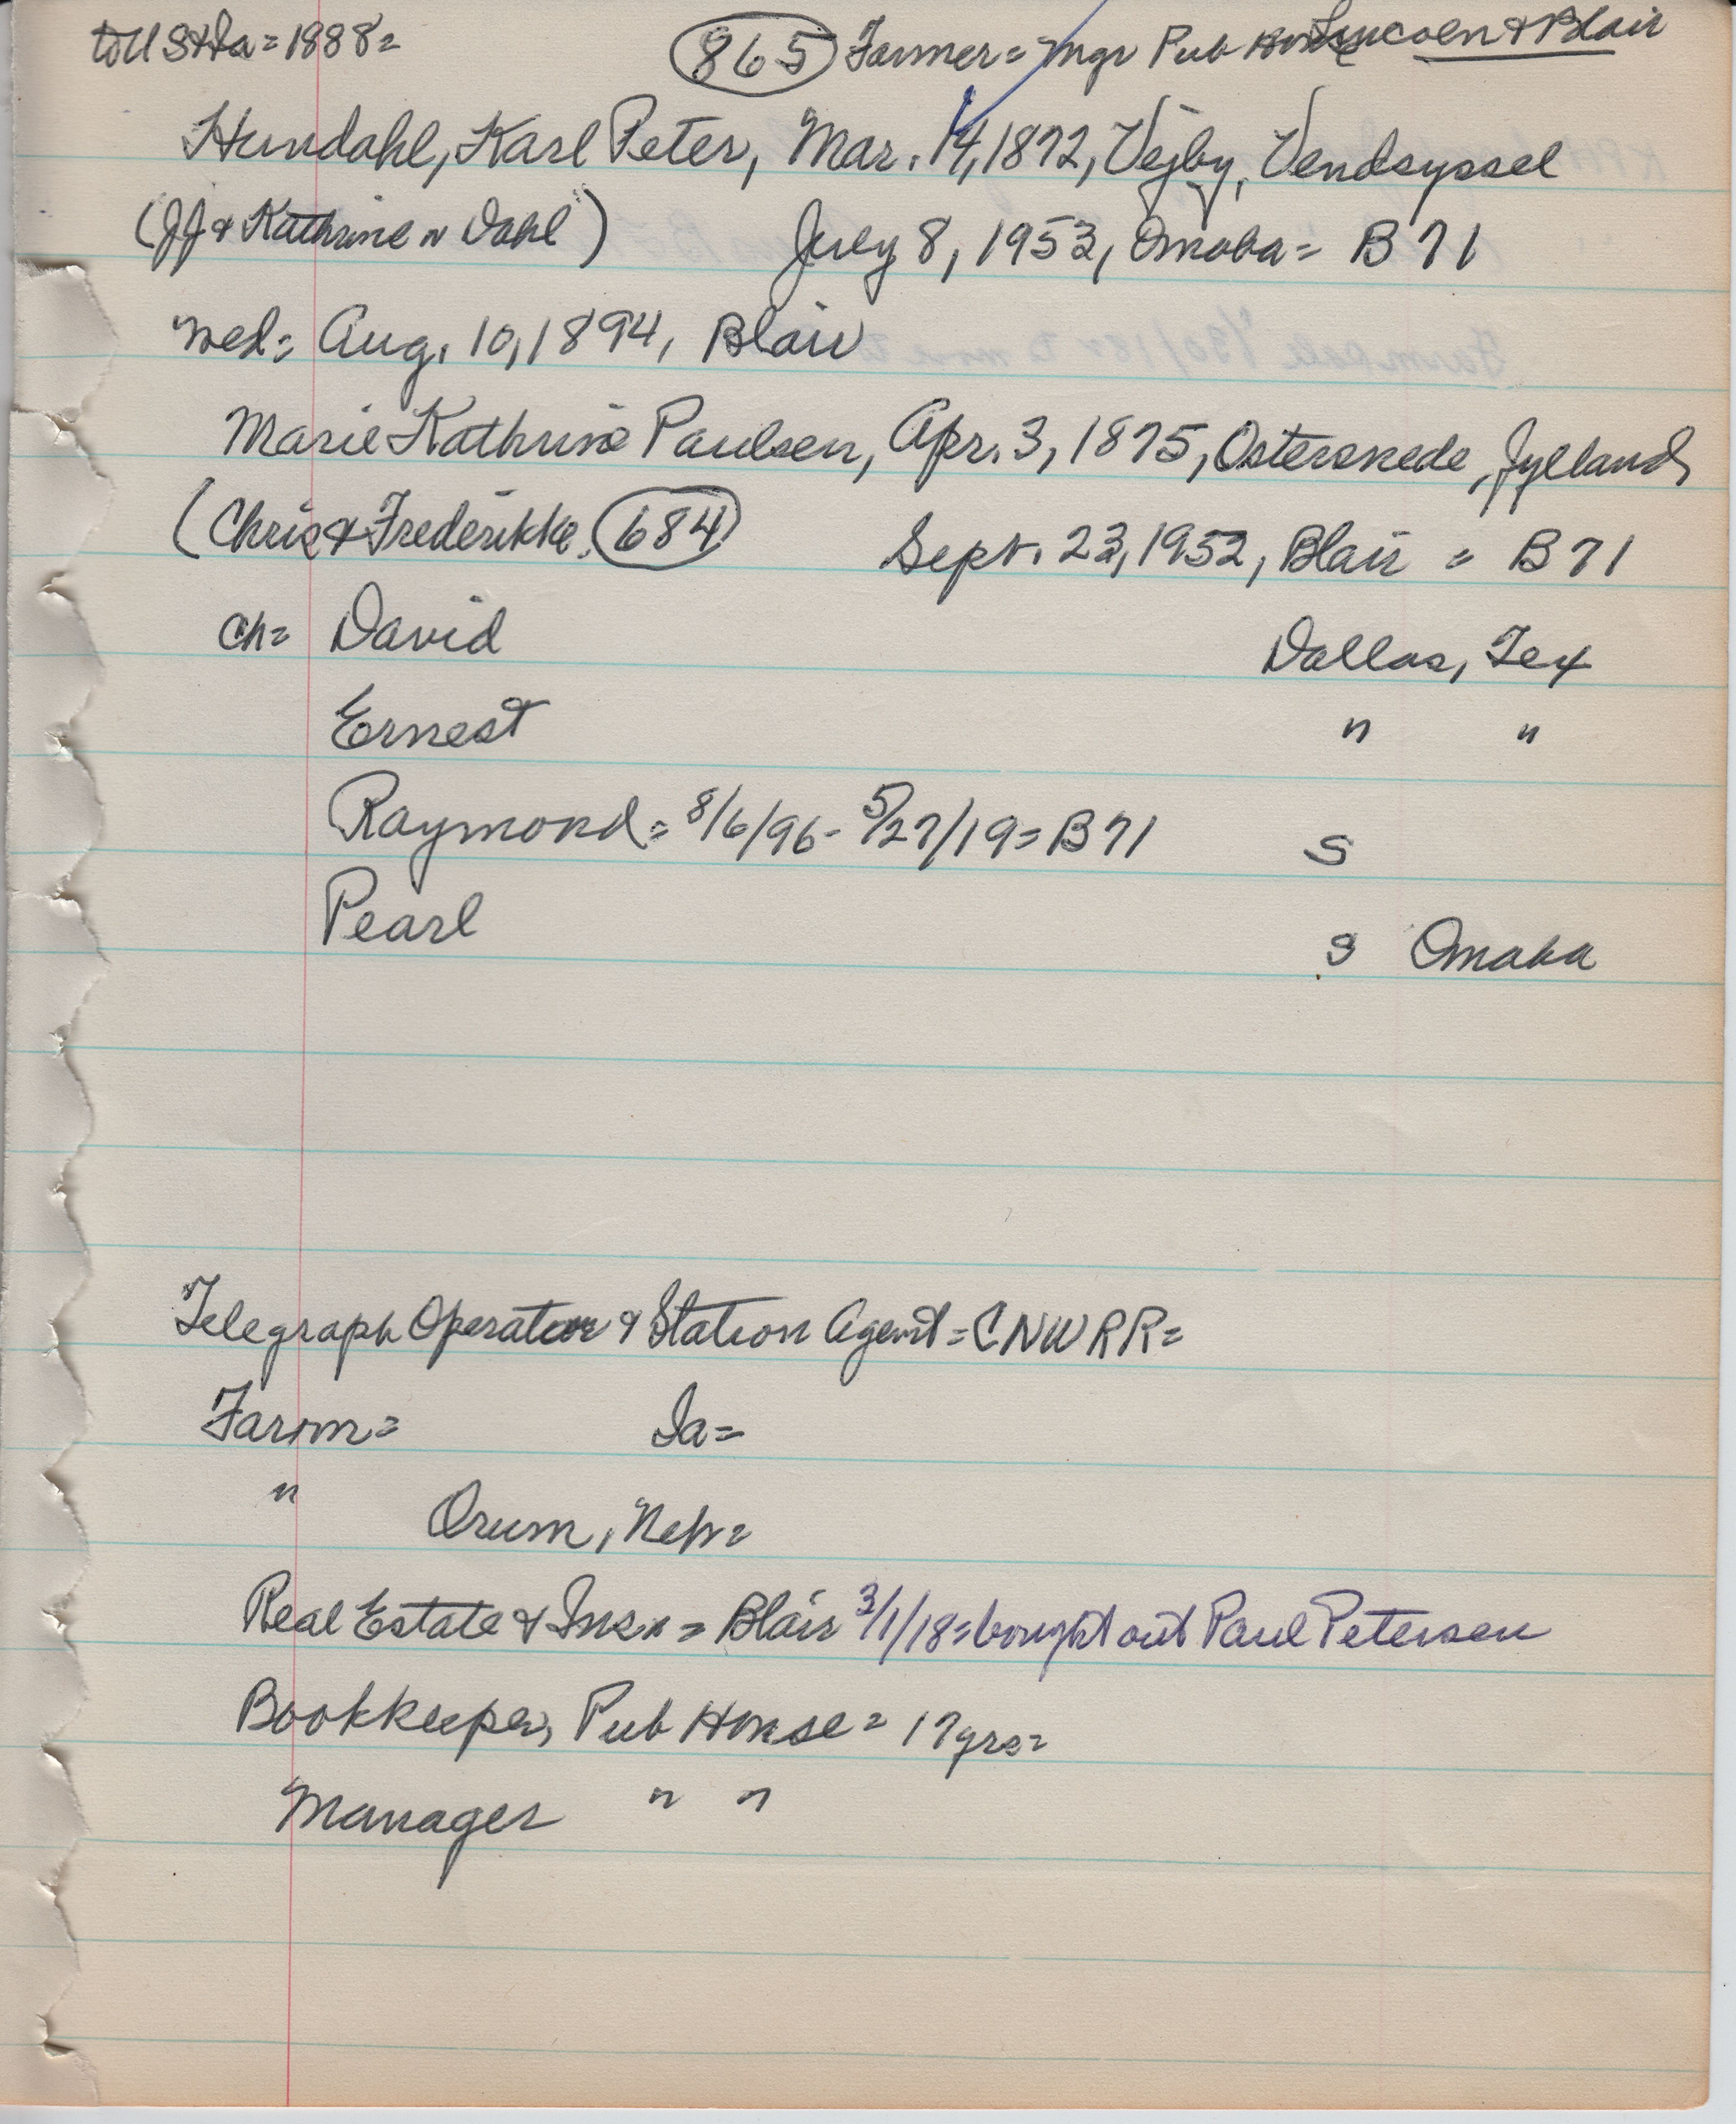 to U S & Ia = 1888 =
865 Farmer = Mgr Pub House Lincoln & Blair
Hundahl, Karl Peter, Mar. 14, 1872, Vejby, Vendsyssel
(JJ & Kathrine n Dahl) July 8, 1953, Omaha = B 71
Wed = Aug. 10, 1894, Blair
Marie Kathrine Paulsen, Apr. 3, 1875, Ostersnede, Jylland
(Chris & Frederikke 684) Sept. 23, 1952, Blair = B 71
Ch = David Dallas, Tex
Ernest " "
Raymond = 8/6/96 - 5/27/19 = B 71 S
Pearl S Omaha
Telegraph Operator & Station Agent = CNW RR =
Farm = Ia =
" Orum, Nebr =
Real Estate & Insn = Blair 3/1/18 = bought out Paul Petersen
Bookkeeper, Pub House = 17 yrs =
Manager " "